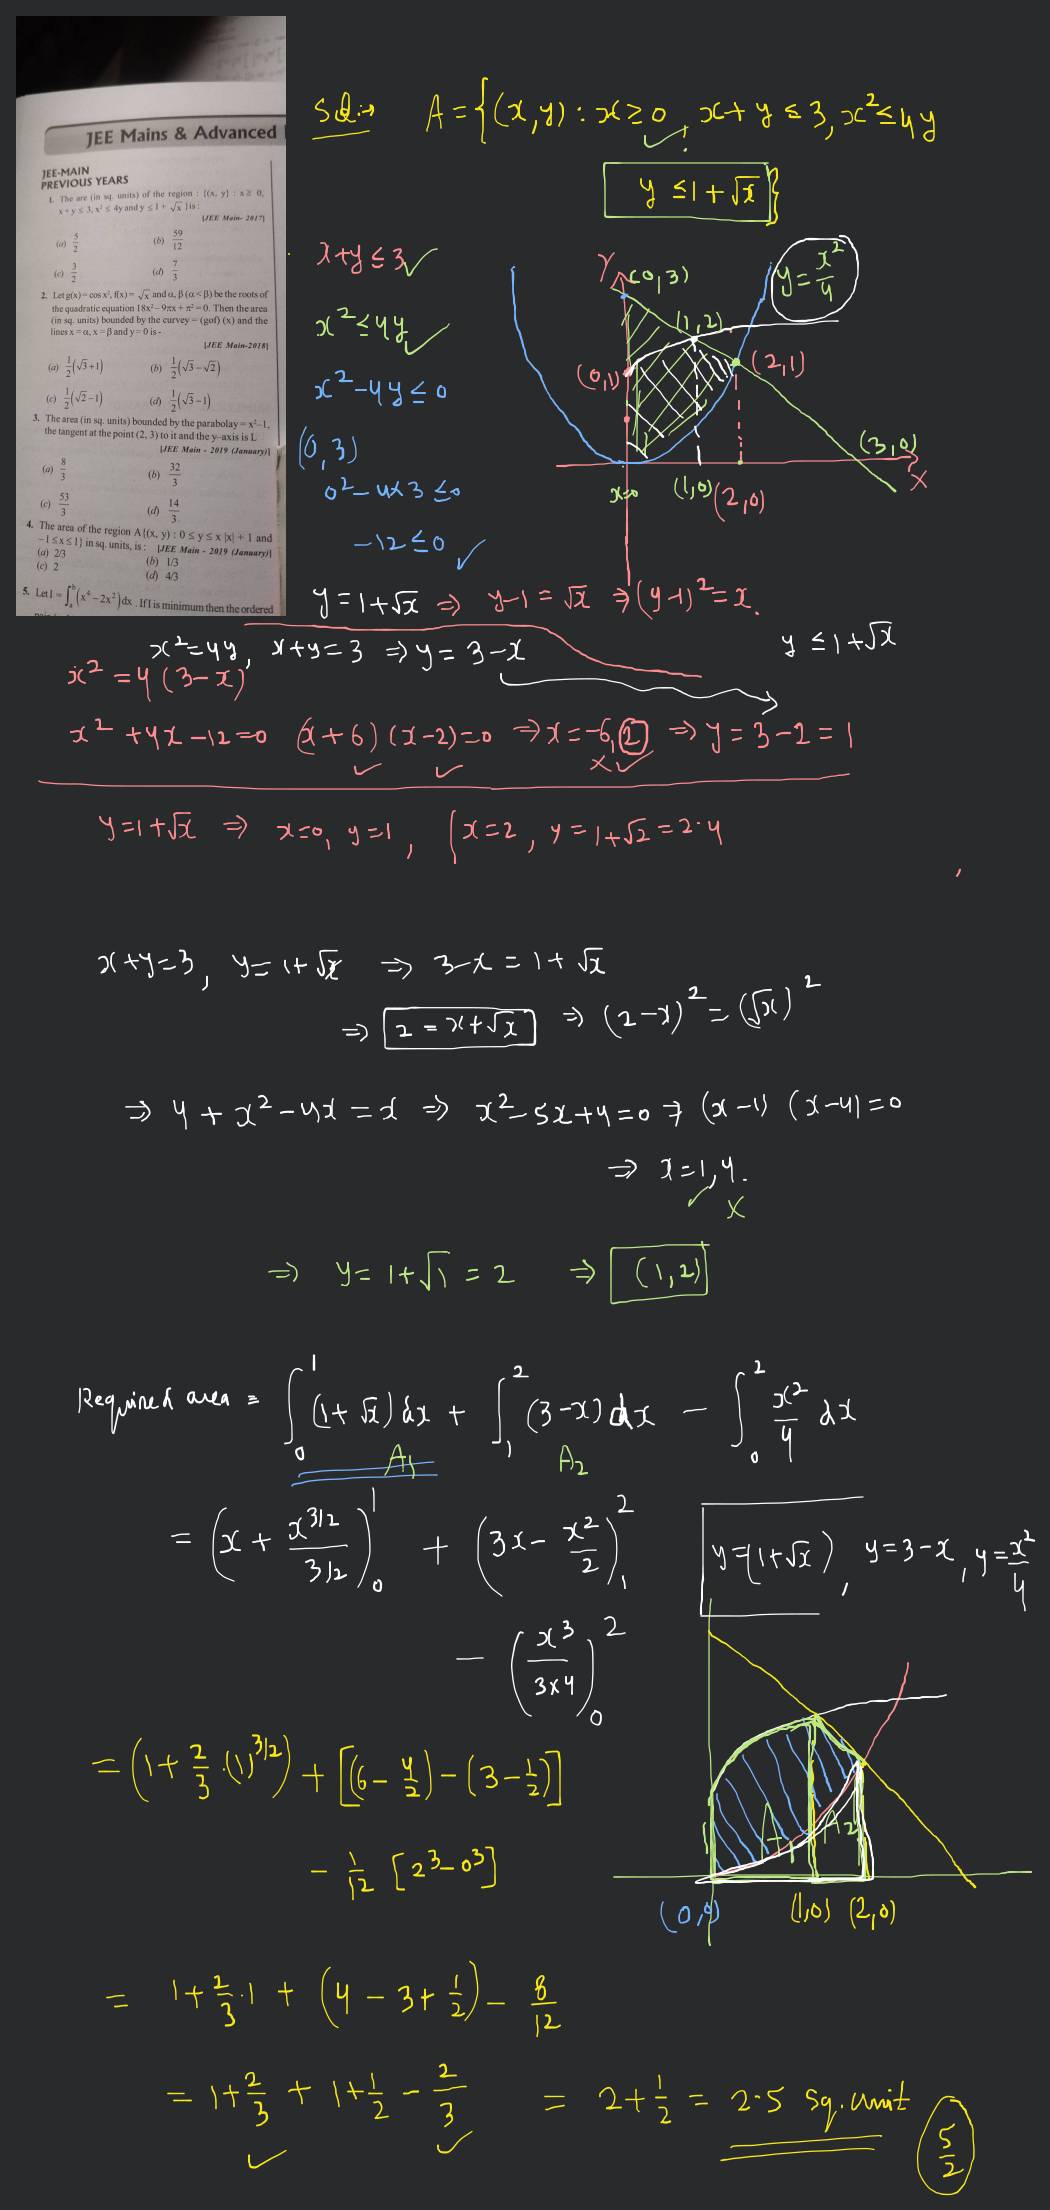 JEE Mains & Advanced
JEE-MAIN
PREVIOUS YEARS
1. The are (in sq. units) of the region : {(x, y) : x ≥ 0,
x + y ≤ 3, x² ≤ 4y and y ≤ 1 + √x } is :
[JEE Main- 2017]
(a) 5/2 (b) 59/12
(c) 3/2 (d) 7/3
2. Let g(x) = cos x², f(x) = √x and α, β (α < β) be the roots of
the quadratic equation 18x² − 9πx + π² = 0. Then the area
(in sq. units) bounded by the curve = (gof) (x) and the
lines x = α, x = β and y = 0 is -
[JEE Main-2018]
(a) 1/2(√3+1) (b) 1/2(√3−√2)
(c) 1/2(√2−1) (d) 1/2(√3−1)
3. The area (in sq. units) bounded by the parabola y = x²−1,
the tangent at the point (2, 3) to it and the y-axis is
[JEE Main - 2019 (January)]
(a) 8/3 (b) 32/3
(c) 53/3 (d) 14/3
4. The area of the region A{(x, y) : 0 ≤ y ≤ x |x| + 1 and
−1 ≤ x ≤ 1} in sq. units, is : [JEE Main - 2019 (January)]
(a) 2/3 (b) 1/3
(c) 2 (d) 4/3
5. Let I = ∫ₐᵇ (x⁴ − 2x²) dx . If I is minimum then the ordered
Sol:→ A = {(x, y) : x ≥ 0, x + y ≤ 3, x² ≤ 4y
y ≤ 1 + √x }
x+y ≤ 3 ✓
x² ≤ 4y ✓
x² − 4y ≤ 0
(0, 3)
0² − 4×3 ≤ 0
−12 ≤ 0 ✓
Y (0,3)
y = x²/4
(1,2)
(0,1) (2,1)
(3,0)
x=0 (1,0) (2,0) X
y = 1+√x ⇒ y−1 = √x ⇒ (y−1)² = x.
x² = 4y, x+y = 3 ⇒ y = 3−x y ≤ 1+√x
x² = 4(3−x)
x² + 4x − 12 = 0 (x+6)(x−2) = 0 ⇒ x = −6, 2 ⇒ y = 3−2 = 1
y = 1+√x ⇒ x=0, y=1, x=2, y = 1+√2 = 2.4
x+y = 3, y = 1+√x ⇒ 3−x = 1+√x
⇒ 2 = x+√x ⇒ (2−x)² = (√x)²
⇒ 4 + x² − 4x = x ⇒ x² − 5x + 4 = 0 ⇒ (x−1)(x−4) = 0
⇒ x = 1, 4.
✓ ×
⇒ y = 1+√1 = 2 ⇒ (1,2)
Required area = ∫₀¹ (1+√x) dx + ∫₁² (3−x) dx − ∫₀² x²/4 dx
A₁ A₂
= (x + x^(3/2)/(3/2))₀¹ + (3x − x²/2)₁²
− (x³/(3×4))₀²
y = (1+√x), y = 3−x, y = x²/4
= (1 + 2/3 .(1)^(3/2)) + [(6 − 4/2) − (3 − 1/2)]
− 1/12 [2³ − 0³]
A₁ A₂
(0,0) (1,0) (2,0)
= 1 + 2/3 .1 + (4 − 3 + 1/2) − 8/12
= 1 + 2/3 + 1 + 1/2 − 2/3 = 2 + 1/2 = 2.5 sq. unit
5/2